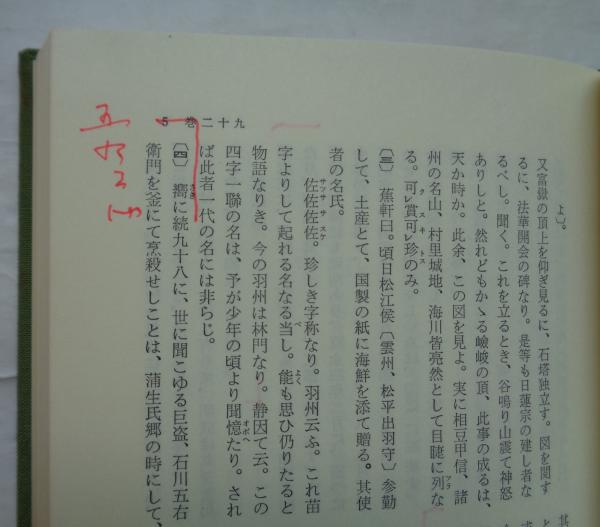 5 巻二十九
よ』。
又富嶽の頂上を仰ぎ見るに、石塔独立す。図を閲す
るに、法華開会の碑なり。是等も日蓮宗の建し者な
るべし。聞く。これを立るとき、谷鳴り山震て神怒
ありしと。然れどもかゝる嶮峻の頂、此事の成るは、
天か時か。此余、この図を見よ。実に相豆甲信、諸
州の名山、村里城地、海川皆亮然として目睫に列な
る。可レ賞可レ珍のみ。
〔三〕 蕉軒曰。頃日松江侯〔雲州、松平出羽守〕参勤
して、土産とて、国製の紙に海鮮を添て贈る。其使
者の名氏。
佐佐佐佐。珍しき字称なり。羽州云ふ。これ苗
字よりして起れる名なる当し。能も思ひ仍りたると
物語なりき。今の羽州は林門なり。静因て云。この
四字一聯の名は、予が少年の頃より聞憶たり。され
ば此者一代の名には非らじ。
〔四〕 嚮に続九十八に、世に聞こゆる巨盗、石川五右
衛門を釜にて烹殺せしことは、蒲生氏郷の時にして、